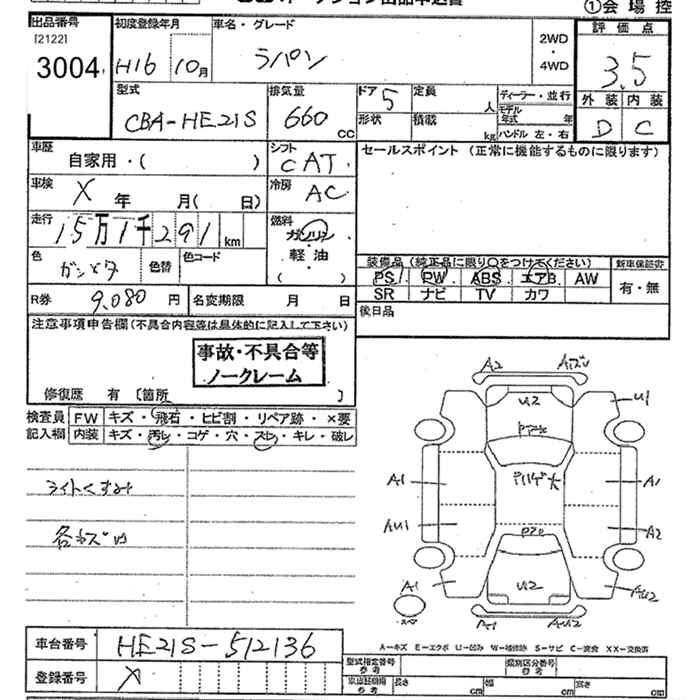 ①会場控
出品番号 初度登録年月 車名・グレード 2WD・4WD 評価点
[2122]
3004 H16 10月 ラパン 3.5
型式 排気量 ドア 5 定員 人 ディーラー・並行 外装 内装
CBA-HE21S 660 cc 形状 積載 kg モデル年式 年 D C
ハンドル 左・右
車歴 自家用・( ) シフト CAT セールスポイント (正常に機能するものに限ります)
車検 X 年 月( 日) 冷房 AC
走行 15万1千291 km 燃料 ガソリン・軽油・( )
色 色替 色コード
装備品 (純正品に限り○をつけて下さい) 新車保証書
PS PW ABS エアB AW 有・無
SR ナビ TV カワ
R券 9,080 円 名変期限 月 日 後日品
注意事項申告欄(不具合内容等は具体的に記入して下さい)
事故・不具合等
ノークレーム
修復歴 有 〔箇所 〕
検査員 FW キズ・飛石・ヒビ割・リペア跡・×要
記入欄 内装 キズ・汚レ・コゲ・穴・スレ・キレ・破レ
ライトくすみ
A2
U2
U1
A1 A1
AU1 A2
A1 U2 AU2
A1 AU2
A-キズ E-エクボ U-凹み W-補修跡 S-サビ C-腐食 XX-交換済
車台番号 HE21S-512136
登録番号 X
型式指定番号 参考 類別区分番号 参考
長さ cm 幅 cm 高さ cm